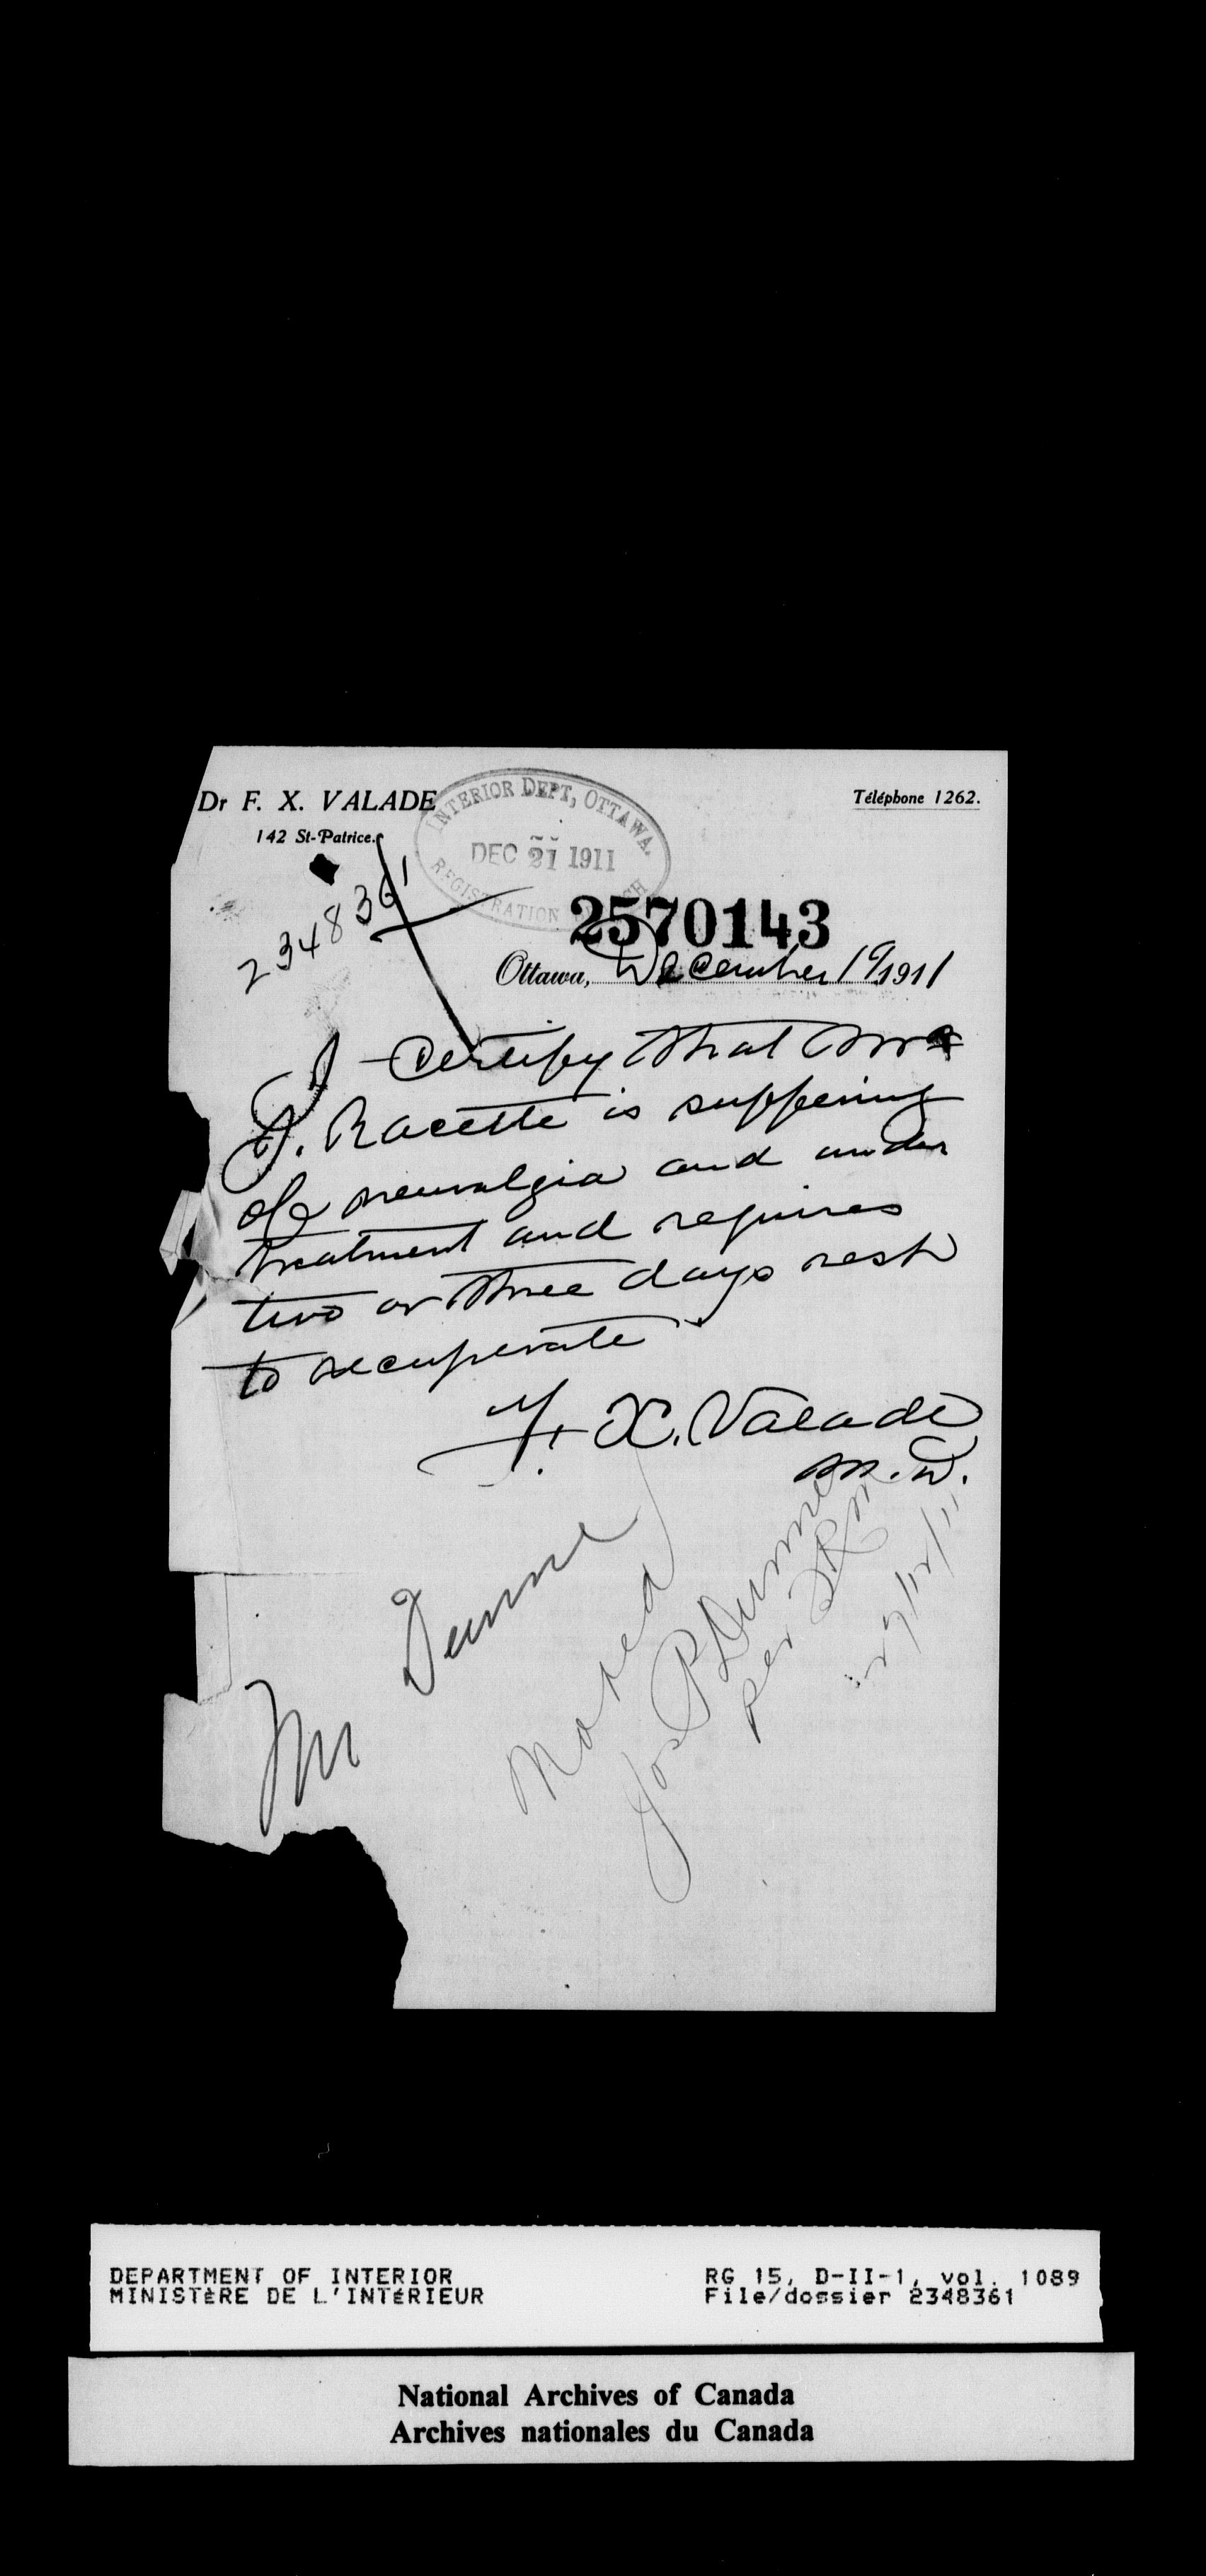 Dr F. X. VALADE
142 St-Patrice.
Téléphone 1262.
INTERIOR DEPT, OTTAWA.
DEC 21 1911
REGISTRATION BRANCH
2348361
2570143
Ottawa, December 19 1911
I certify that Mr
Racette is suffering
of neuralgia and under
treatment and requires
two or three days rest
to recuperate
F. X. Valade
M.D.
Mr Dunne
Noted
Jos P Dunne
per
DEPARTMENT OF INTERIOR
MINISTÈRE DE L'INTÉRIEUR
RG 15, D-II-1, vol. 1089
File/dossier 2348361
National Archives of Canada
Archives nationales du Canada